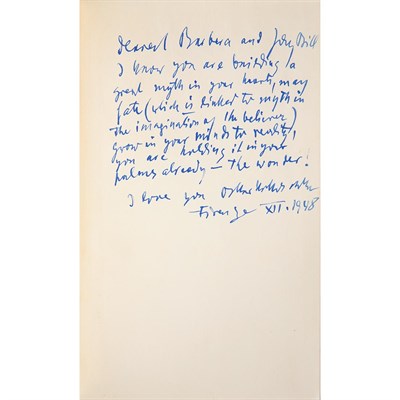 dearest Barbara and Jory Bill
I know you are building a
great myth in your hearts, may
fate (which is linked to myth in
the imagination of the believer)
grow in your minds to reality,
you are holding it in your
palms already — the wonder!
I love you Oskar Kokoschka
Firenze XII. 1948